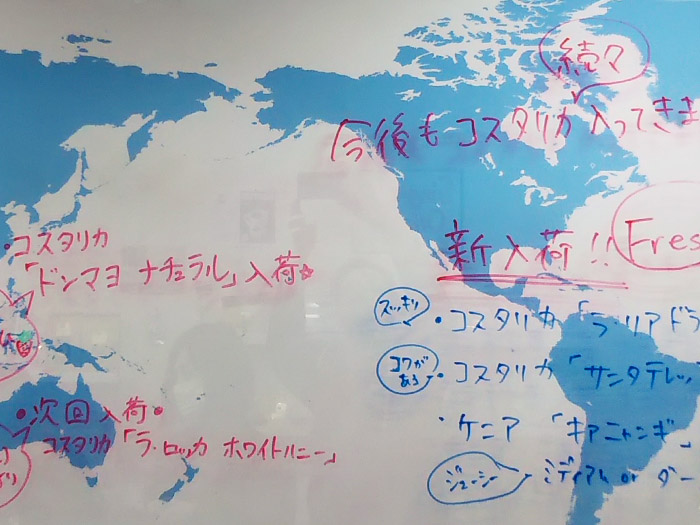 続々
今後もコスタリカ入ってきま
・コスタリカ
「ドンマヨ ナチュラル」入荷☆
新入荷!! Fres
スッキリ ・コスタリカ「ラ・リアドラ
コクがある ・コスタリカ「サンタテレッ
・ケニア 「キアニャンギ」
ジューシー ミディアム or ダー
・次回入荷・
コスタリカ「ラ・ロッカ ホワイトハニー」